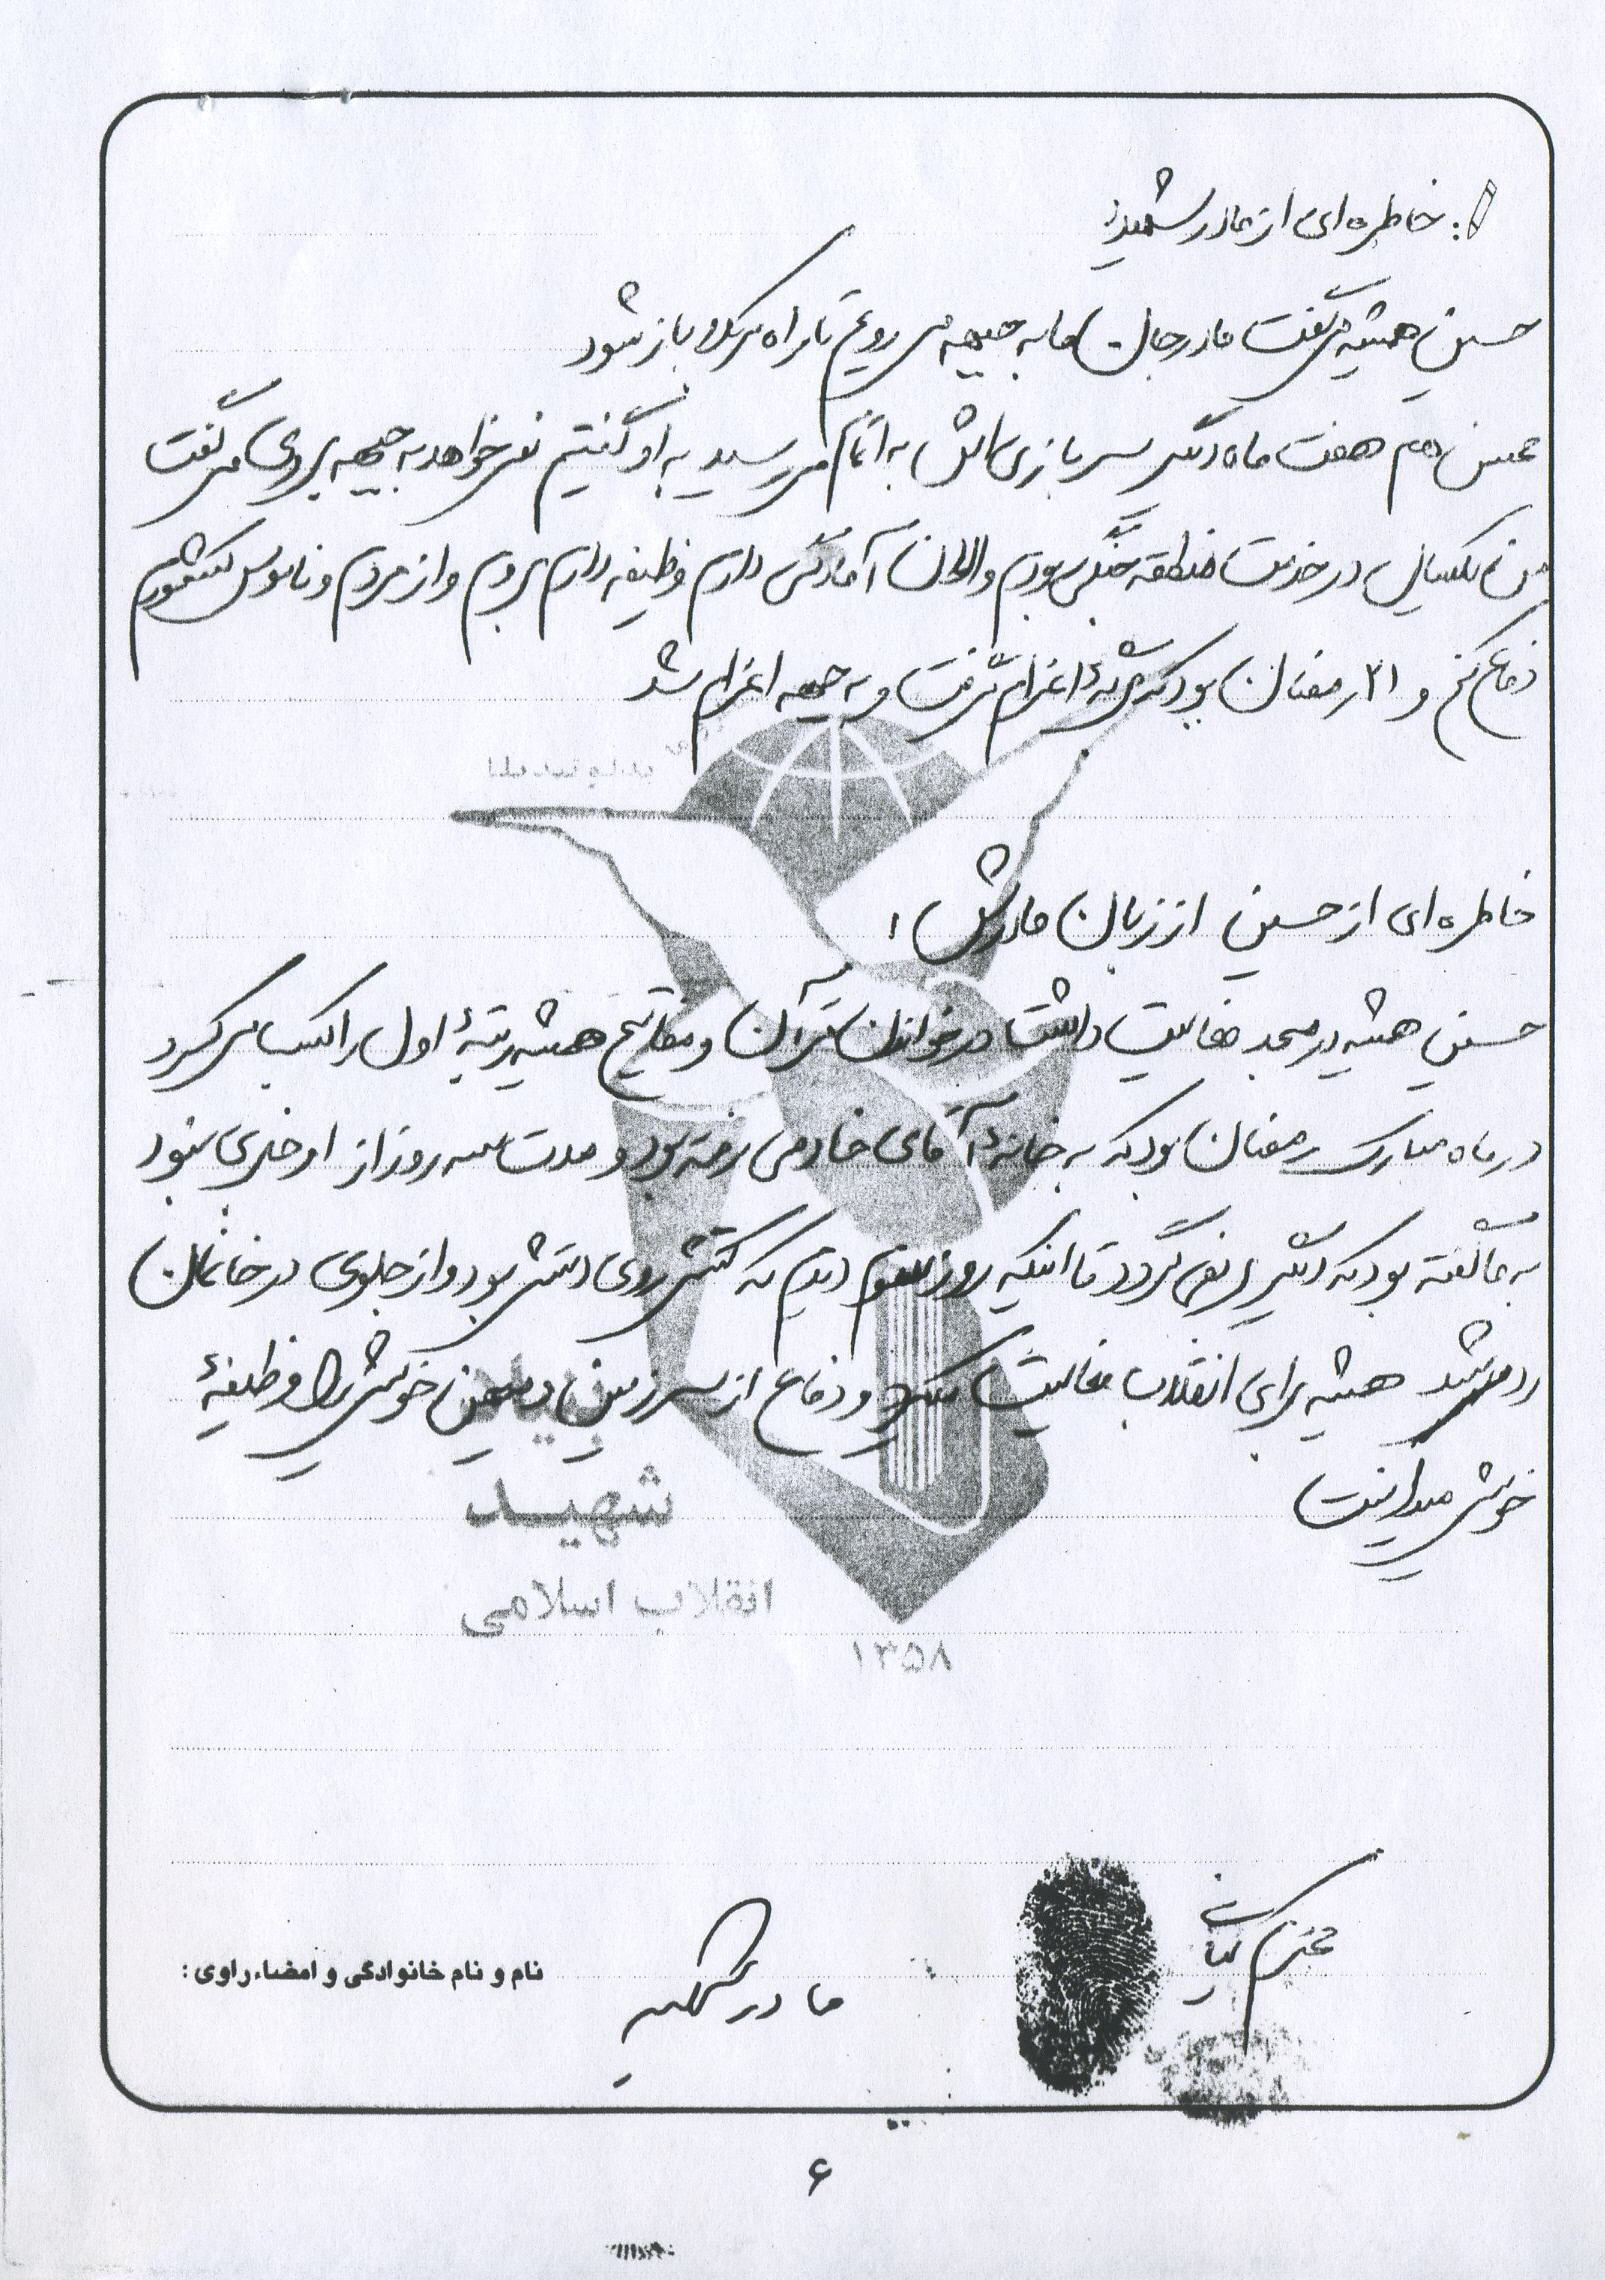 خاطره ای از مادر شهید:
حسین همیشه می گفت مادر جان ما به جبهه می رویم تا راه کربلا باز شود
هفت ماه دیگر سربازی اش به اتمام می رسید به او گفتیم نمی خواهد به جبهه بروی می گفت
من یکسال در خدمت منطقه جنگی بودم و الان آمادگی دارم وظیفه دارم بروم و از مردم و ناموس کشورم
دفاع کنم و ۲۱ رمضان بود که اعزام گرفت و به جبهه اعزام شد
خاطره ای از حسین از زبان مادرش:
حسین همیشه در مسجد فعالیت داشت در خواندن قرآن و مفاتیح همیشه رتبهٔ اول را کسب می کرد
در ماه مبارک رمضان بود که به خانهٔ آقای خادمی رفته بود و مدت سه روز از او خبری نبود
به ما گفته بود که دیگر بر نمی گردد تا اینکه روز سوم دیدم که کتش روی دستش بود و از جلوی در خانمان
رد می شد همیشه برای انقلاب فعالیت میکرد و دفاع از سرزمین و میهن خویش را وظیفهٔ
خویش میدانست
شهید
انقلاب اسلامی
۱۳۵۸
محترم
مادر شهید
نام و نام خانوادگی و امضاء راوی:
۶